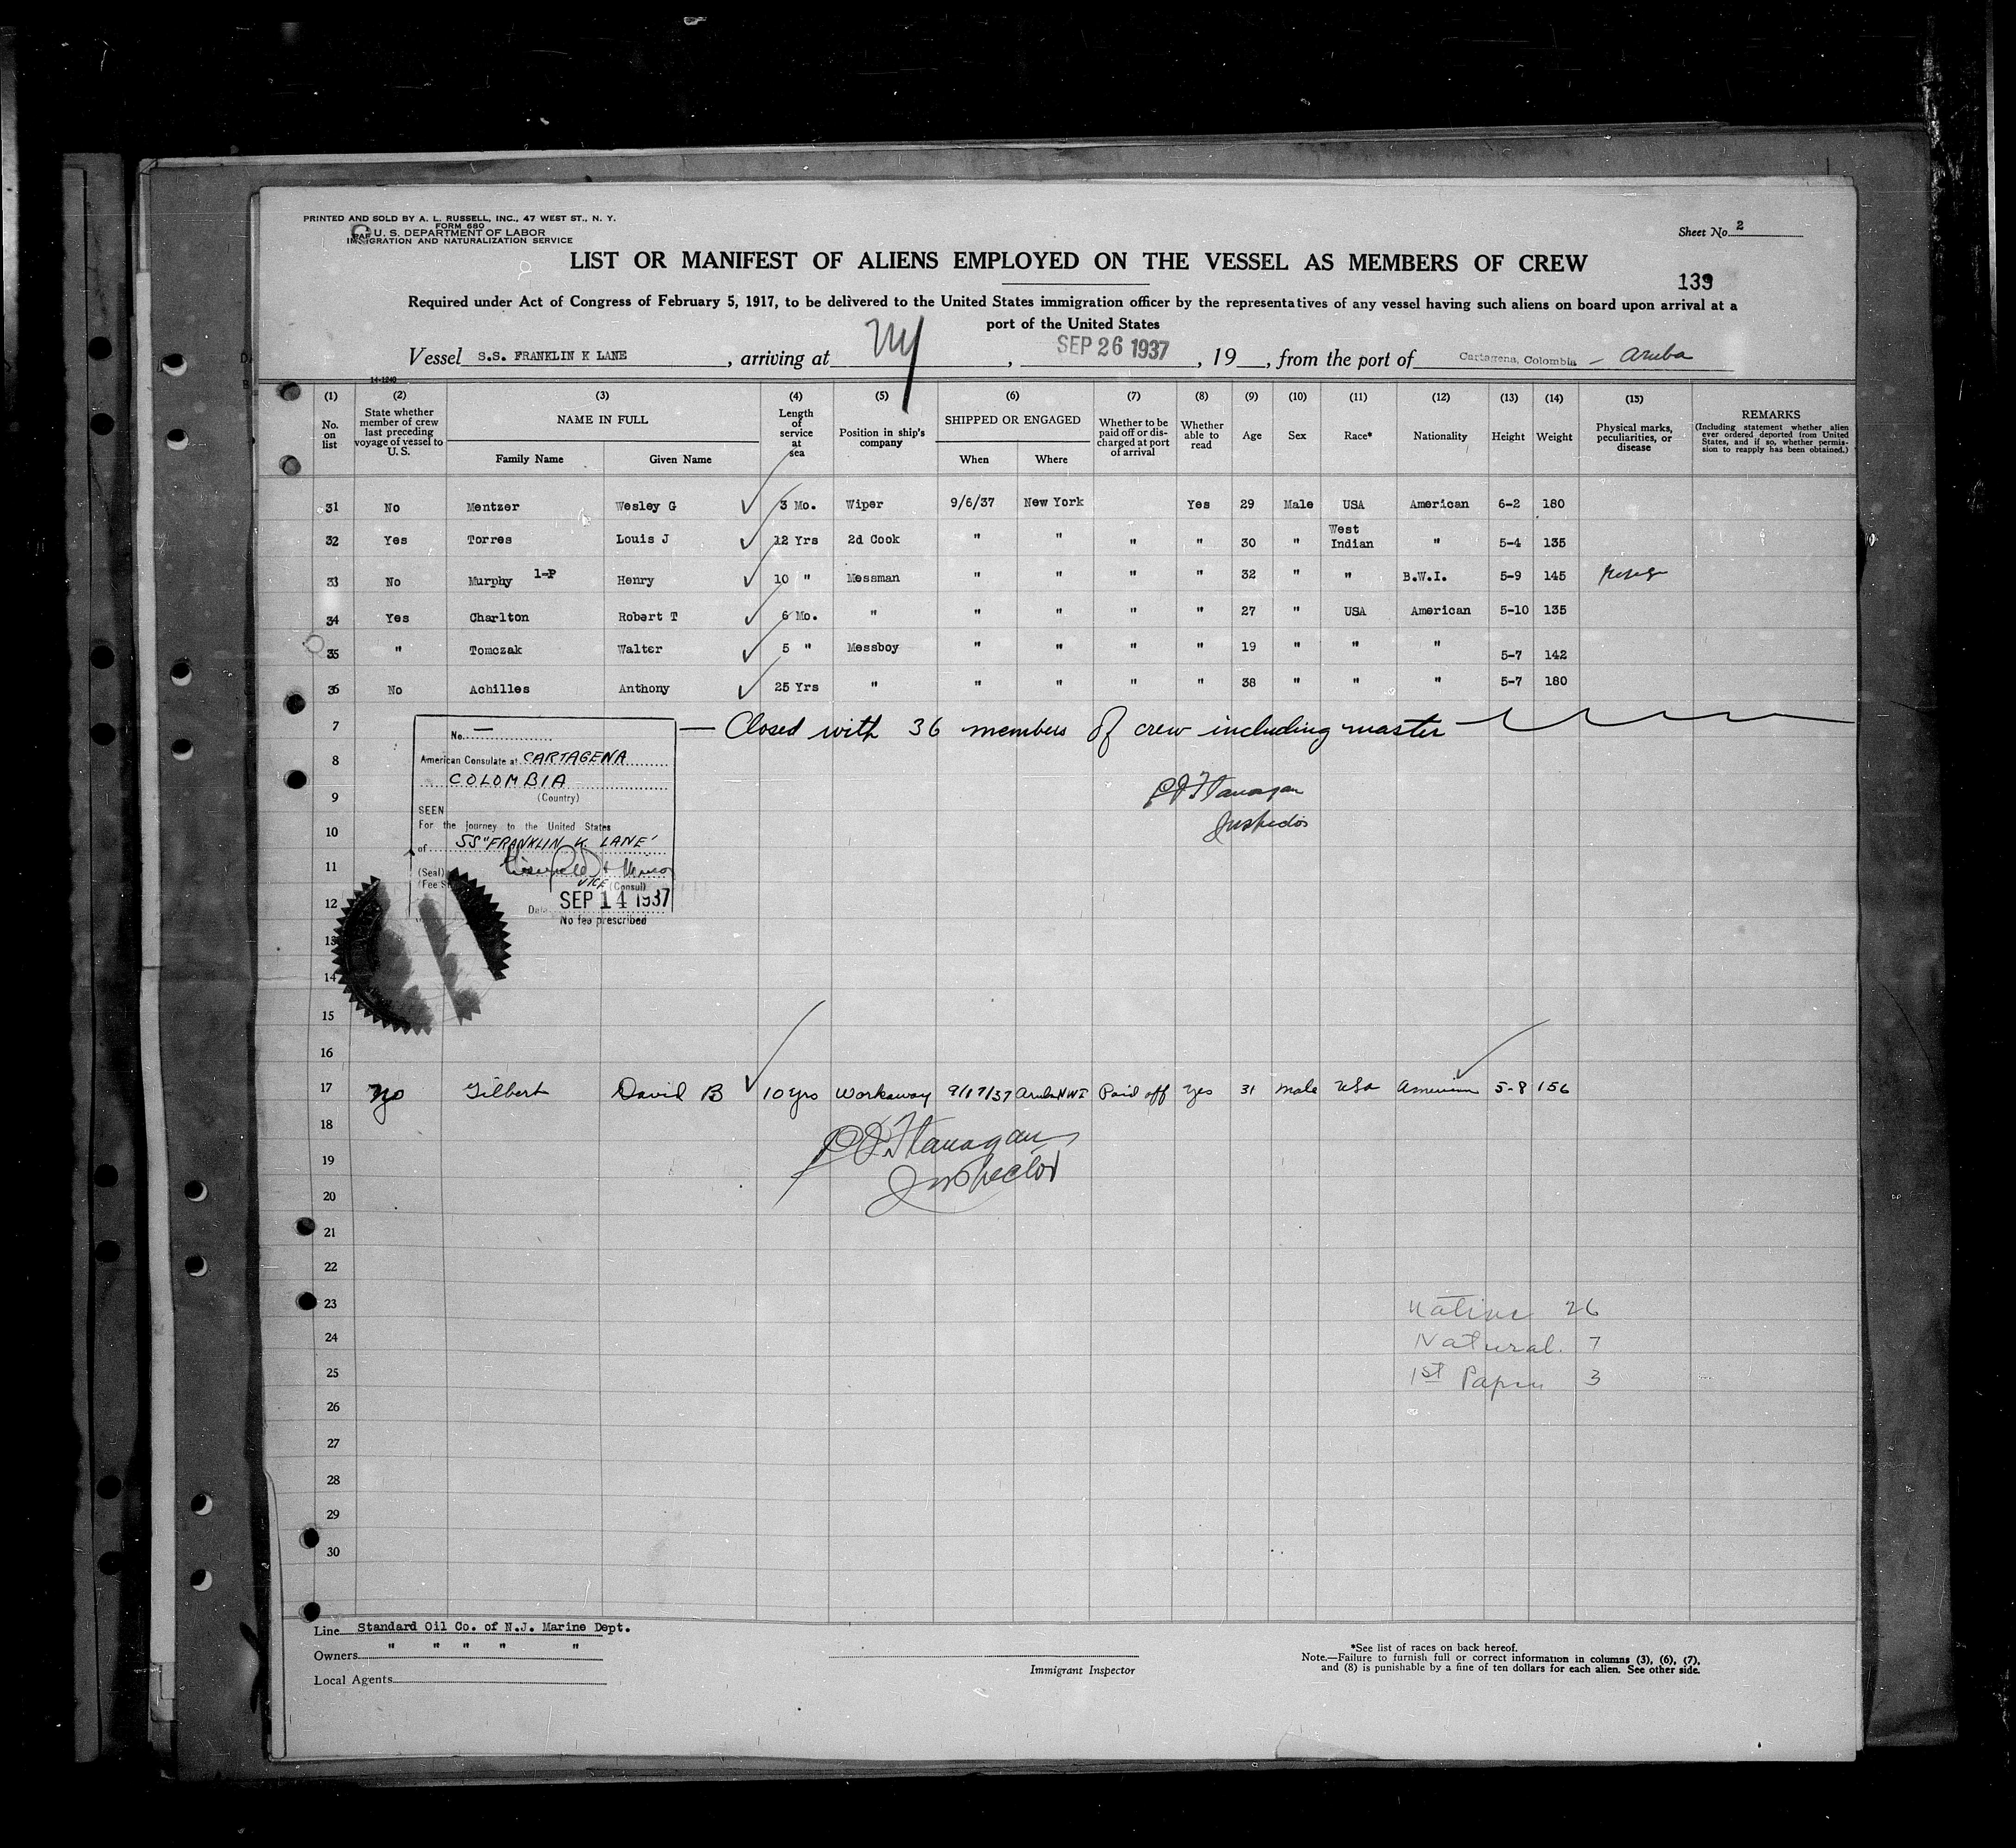 PRINTED AND SOLD BY A. L. RUSSELL, INC., 47 WEST ST., N. Y.
FORM 680
U. S. DEPARTMENT OF LABOR
IMMIGRATION AND NATURALIZATION SERVICE
Sheet No. 2
LIST OR MANIFEST OF ALIENS EMPLOYED ON THE VESSEL AS MEMBERS OF CREW
139
Required under Act of Congress of February 5, 1917, to be delivered to the United States immigration officer by the representatives of any vessel having such aliens on board upon arrival at a
port of the United States
Vessel S.S. FRANKLIN K LANE, arriving at NY, SEP 26 1937, 19__, from the port of Cartagena, Colombia - Aruba
14-1240
(1) (2) (3) (4) (5) (6) (7) (8) (9) (10) (11) (12) (13) (14) (15)
No. on list
State whether member of crew last preceding voyage of vessel to U. S.
NAME IN FULL
Family Name Given Name
Length of service at sea
Position in ship's company
SHIPPED OR ENGAGED
When Where
Whether to be paid off or discharged at port of arrival
Whether able to read
Age
Sex
Race*
Nationality
Height
Weight
Physical marks, peculiarities, or disease
REMARKS
(Including statement whether alien ever ordered deported from United States, and if so, whether permission to reapply has been obtained.)
31 No Mentzer Wesley G 3 Mo. Wiper 9/6/37 New York Yes 29 Male USA American 6-2 180
32 Yes Torres Louis J 12 Yrs 2d Cook " " " " 30 " West Indian " 5-4 135
33 No Murphy 1-P Henry 10 " Messman " " " " 32 " " B.W.I. 5-9 145
34 Yes Charlton Robert T 6 Mo. " " " " " 27 " USA American 5-10 135
35 " Tomczak Walter 5 " Messboy " " " " 19 " " " 5-7 142
36 No Achilles Anthony 25 Yrs " " " " " 38 " " " 5-7 180
7 — Closed with 36 members of crew including master
No. —
8
American Consulate at CARTAGENA
COLOMBIA
(Country)
9
P J Flanagan
Inspector
SEEN
For the journey to the United States
10
of SS "FRANKLIN K. LANE"
11
(Seal)
VICE (Consul)
12
Date SEP 14 1937
No fee prescribed
13
14
15
16
17 No Gilbert David B 10 yrs Workaway 9/17/37 Aruba NWI Paid off Yes 31 Male USA American 5-8 156
18
P J Flanagan
19
Inspector
20
21
22
23 Native 26
24 Natural. 7
25 1st Paper 3
26
27
28
29
30
Line Standard Oil Co. of N.J. Marine Dept.
Owners " " " " "
Local Agents
Immigrant Inspector
*See list of races on back hereof.
Note.—Failure to furnish full or correct information in columns (3), (6), (7),
and (8) is punishable by a fine of ten dollars for each alien. See other side.